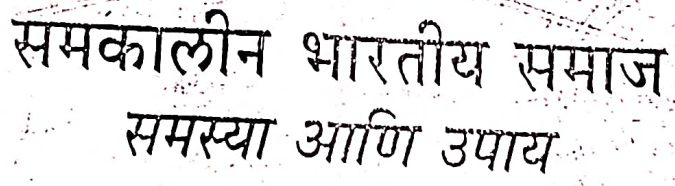 समकालीन भारतीय समाज
समस्या आणि उपाय